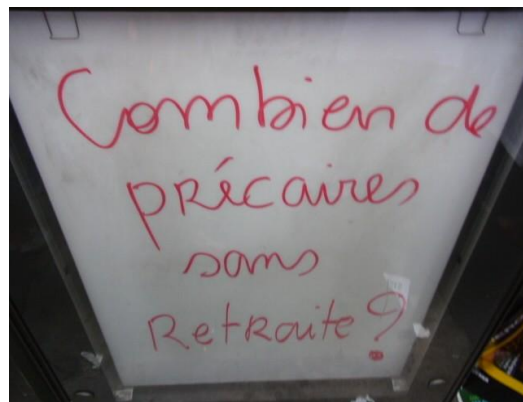 Combien de
précaires
sans
Retraite?